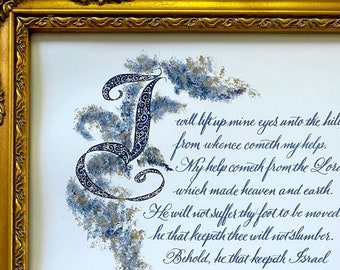 I
will lift up mine eyes unto the hill
from whence cometh my help.
My help cometh from the Lord
which made heaven and earth.
He will not suffer thy foot to be moved
he that keepeth thee will not slumber.
Behold, he that keepeth Israel